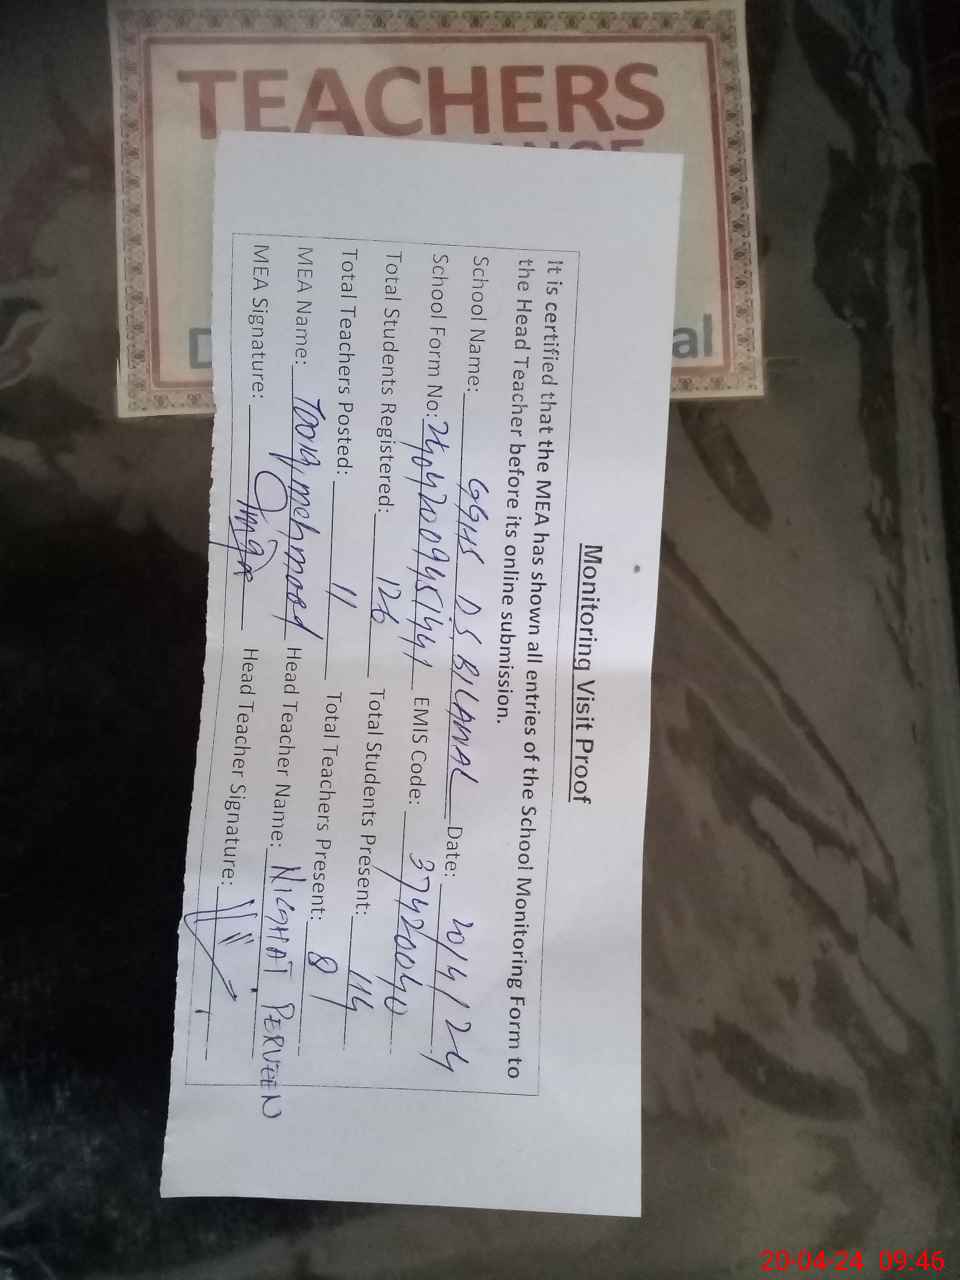 TEACHERS
al
Monitoring Visit Proof
It is certified that the MEA has shown all entries of the School Monitoring Form to
the Head Teacher before its online submission.
School Name: GGHS D.S BILAWAL Date: 20/4/24
School Form No: EMIS Code: 37420040
Total Students Registered: 126 Total Students Present: 114
Total Teachers Posted: 11 Total Teachers Present: 8
MEA Name: mehmood Head Teacher Name: NIGHAT PERVEEN
MEA Signature: Head Teacher Signature:
20-04-24 09:46